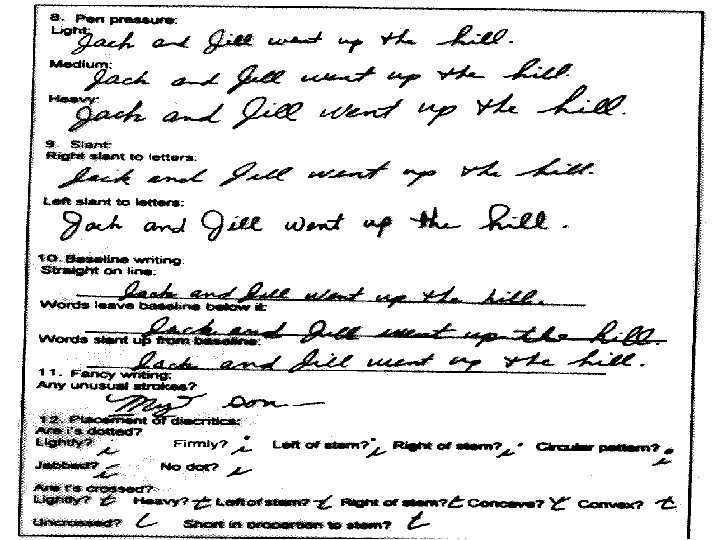 8. Pen pressure:
Light:
Jack and Jill went up the hill.
Medium:
Jack and Jill went up the hill.
Heavy:
Jack and Jill went up the hill.
9. Slant:
Right slant to letters:
Jack and Jill went up the hill.
Left slant to letters:
Jack and Jill went up the hill.
10. Baseline writing:
Straight on line:
Jack and Jill went up the hill.
Words leave baseline below it:
Jack and Jill went up the hill.
Words slant up from baseline:
Jack and Jill went up the hill.
11. Fancy writing:
Any unusual strokes?
My son
12. Placement of diacritics:
Are i's dotted?
Lightly? i Firmly? i Left of stem? i Right of stem? i Circular pattern? i
Jabbed? i No dot? i
Are t's crossed?
Lightly? t Heavy? t Left of stem? t Right of stem? t Concave? t Convex? t
Uncrossed? t Short in proportion to stem? t